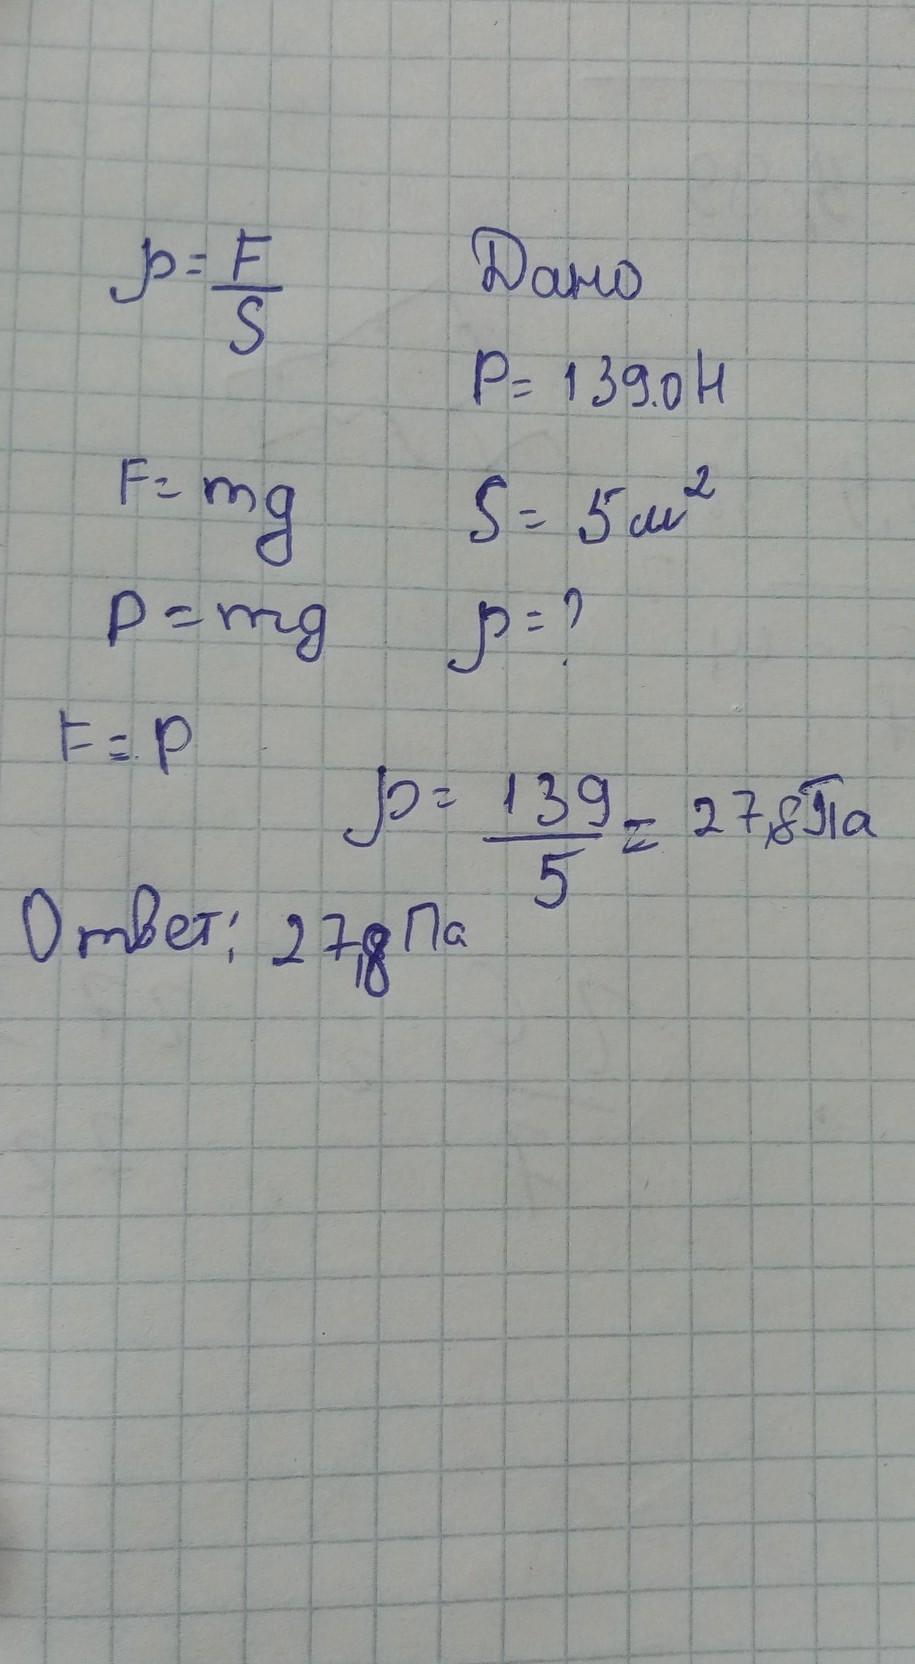 p = F/S
Дано
P = 139.0 Н
F = mg
S = 5 м²
P = mg
p = ?
F = P
p = 139/5 = 27,8 Па
Ответ: 27,8 Па